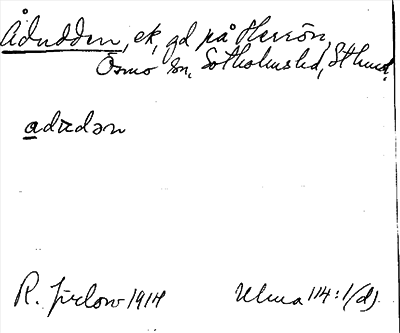 Ådudden, ek, gd på Herrön,
Ösmo sn, Sotholms hd, Sthms l.
adudən
R. Jirlow 1914 Ulma 114:1(d)